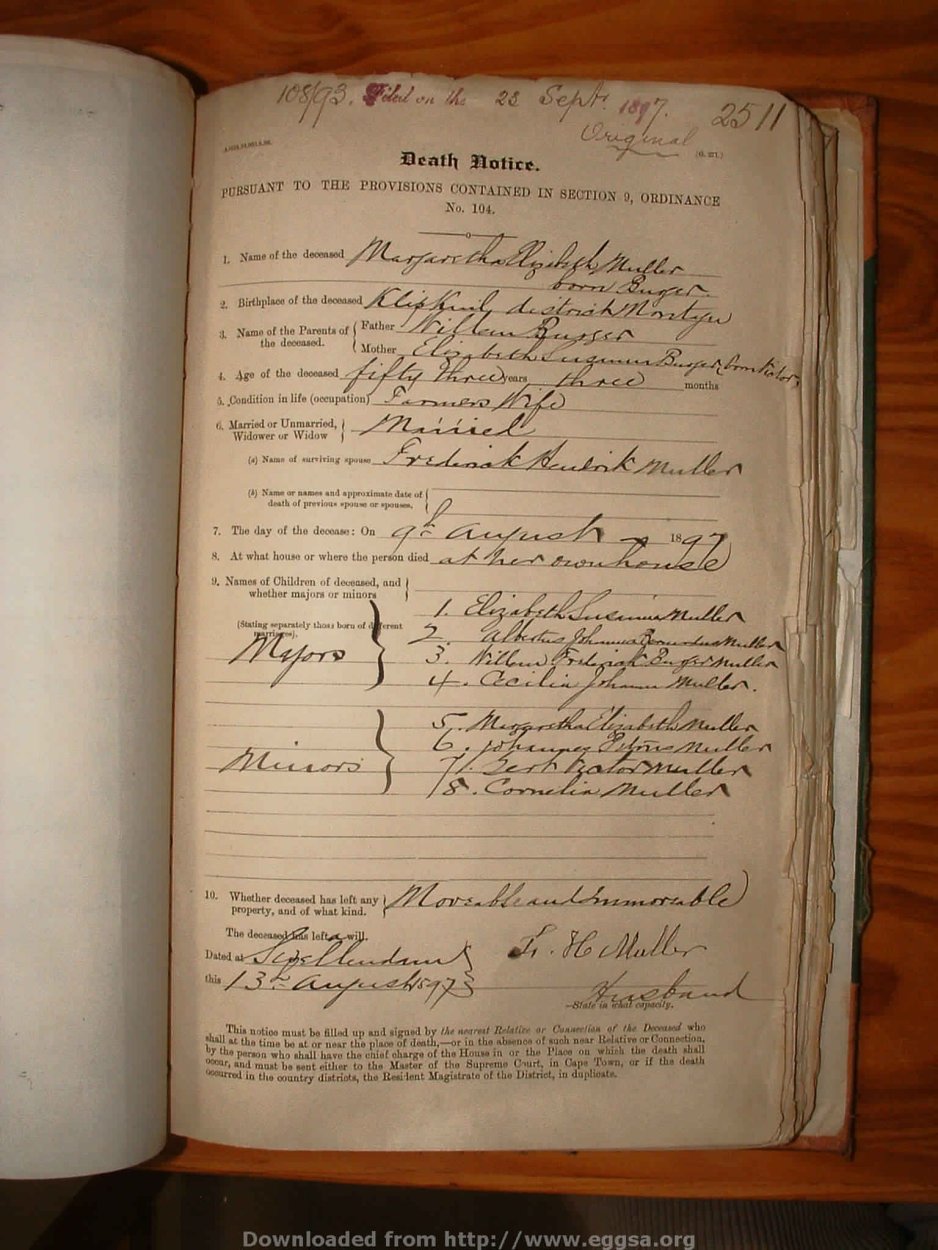 108/93. Filed on the 23 Sept. 1897. 2511
Original
(G. 271.)
Death Notice.
PURSUANT TO THE PROVISIONS CONTAINED IN SECTION 9, ORDINANCE
No. 104.
1. Name of the deceased Margaretha Elizabeth Muller
born Burger.
2. Birthplace of the deceased Klipkuil district Montagu
3. Name of the Parents of the deceased. { Father Willem Burger
Mother Elizabeth Susanna Burger (born Victor)
4. Age of the deceased fifty three years three months
5. Condition in life (occupation) Farmers Wife
6. Married or Unmarried, Widower or Widow } Married
(a) Name of surviving spouse Frederick Hendrik Muller
(b) Name or names and approximate date of
death of previous spouse or spouses. {
7. The day of the decease: On 9th August 1897
8. At what house or where the person died at her own house
9. Names of Children of deceased, and
whether majors or minors {
1. Elizabeth Susanna Muller
(Stating separately those born of different marriages).
2. Albertus Johannes Bernardus Muller
Majors } 3. Willem Frederick Burger Muller
4. Cecilia Johanna Muller.
5. Margaretha Elizabeth Muller
6. Johannes Petrus Muller
Minors } 7. Gert Victor Muller
8. Cornelia Muller
10. Whether deceased has left any
property, and of what kind. } Moveable and Immoveable
The deceased has left a will.
Dated at Swellendam } Fr. H Muller
this 13th August 1897 } Husband
—State in what capacity.
This notice must be filled up and signed by the nearest Relative or Connection of the Deceased who
shall at the time be at or near the place of death,—or in the absence of such near Relative or Connection,
by the person who shall have the chief charge of the House in or the Place on which the death shall
occur, and must be sent either to the Master of the Supreme Court, in Cape Town, or if the death
occurred in the country districts, the Resident Magistrate of the District, in duplicate.
Downloaded from http://www.eggsa.org